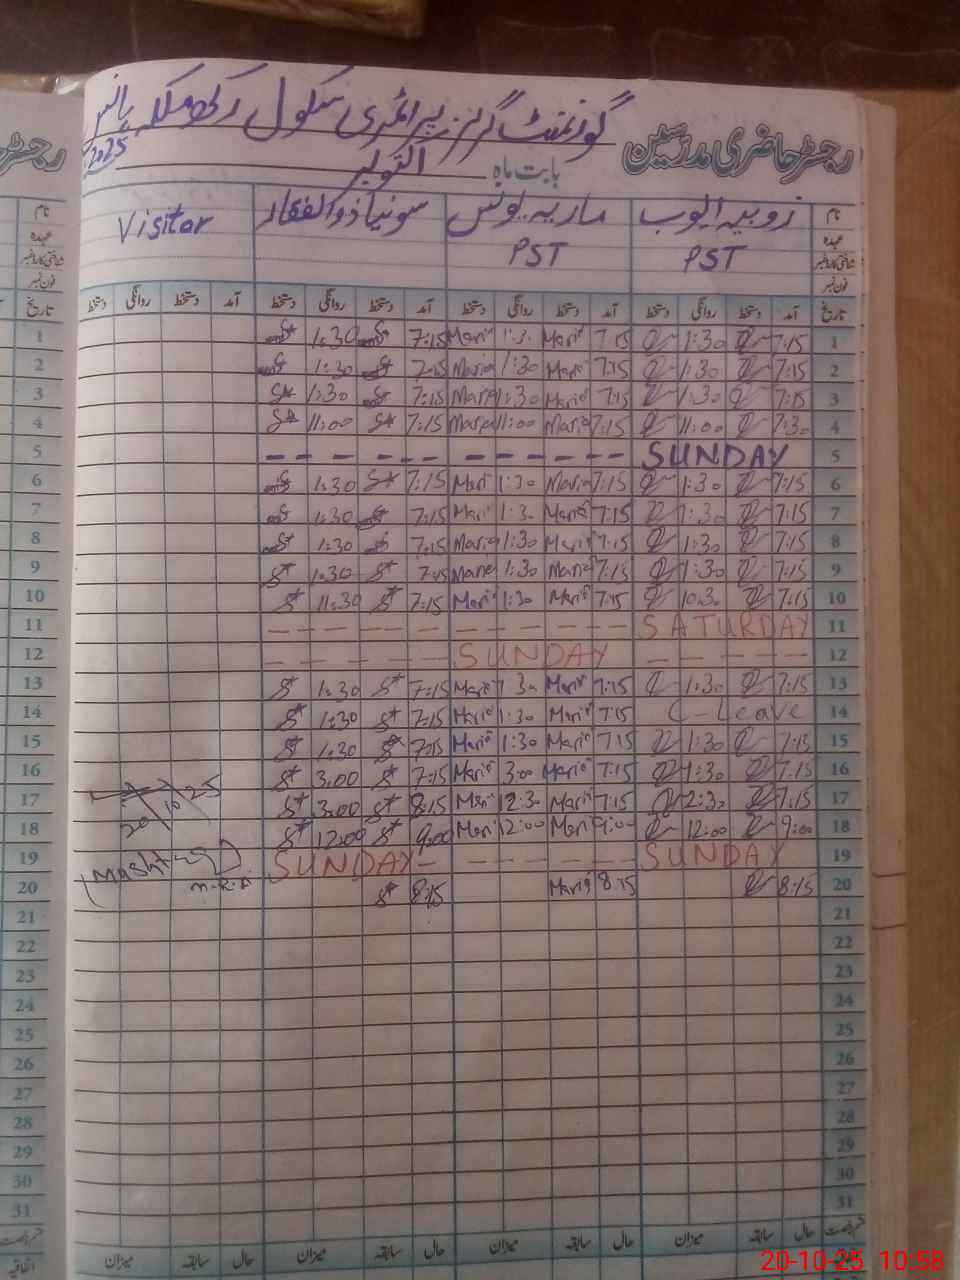 رجسٹر حاضری مدرسین گورنمنٹ گرلز پرائمری سکول رکھ
بابت ماہ اکتوبر 2025
نام روبیہ ایوب ماریہ یونس سونیا ذوالفقار Visitor
عہدہ PST PST
شناختی کارڈ نمبر
فون نمبر
تاریخ آمد دستخط روانگی دستخط آمد دستخط روانگی دستخط آمد دستخط روانگی دستخط آمد دستخط روانگی دستخط
1 7:15 1:30 7:15 Mari 1:30 Mari 7:15 1:30
2 7:15 1:30 7:15 Mari 1:30 Maria 7:15 1:30
3 7:15 1:30 7:15 Maria 1:30 Maria 7:15 1:30
4 7:30 11:00 7:15 Maria 11:00 Maria 7:15 11:00
5 SUNDAY
6 7:15 1:30 7:15 Maria 1:30 Mari 7:15 1:30
7 7:15 1:30 7:15 Maria 1:30 Mari 7:15 1:30
8 7:15 1:30 7:15 Mari 1:30 Maria 7:15 1:30
9 7:15 1:30 7:15 Maria 1:30 Maria 7:15 1:30
10 7:15 10:30 7:15 Mari 1:30 Mari 7:15 11:30
11 SATURDAY
12 SUNDAY
13 7:15 1:30 7:15 Mari 1:30 Mari 7:15 1:30
14 C-Leave 7:15 Mari 1:30 Mari 7:15 1:30
15 7:15 1:30 7:15 Mari 1:30 Mari 7:15 1:30
16 7:15 1:30 7:15 Maria 3:00 Mari 7:15 3:00
17 7:15 2:30 7:15 Mari 12:30 Mari 8:15 3:00
18 9:00 12:00 9:00 Mari 12:00 Mari 9:00 12:00
19 SUNDAY SUNDAY
20 8:15 8:15 Maria 8:15
20/10/25
21
22
23
24
25
26
27
28
29
30
31
حال سابقہ میزان حال سابقہ میزان حال سابقہ میزان حال سابقہ میزان
20-10-25 10:58